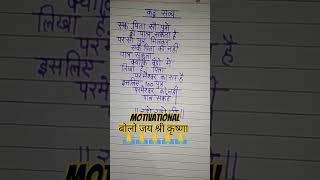 कटु सत्य
एक पिता सौ पुत्रों
को पाल सकता है
परसौ पुत्र मिलकर
एक पिता को नहीं
पाल सकता
क्योंकि वेदों में
लिखा है पिता
परमेश्वर का रूप है
इसलिए १०० पुत्र
परमेश्वर को नहीं
पाल सकते
MOTIVATIONAL
बोलो जय श्री कृष्णा